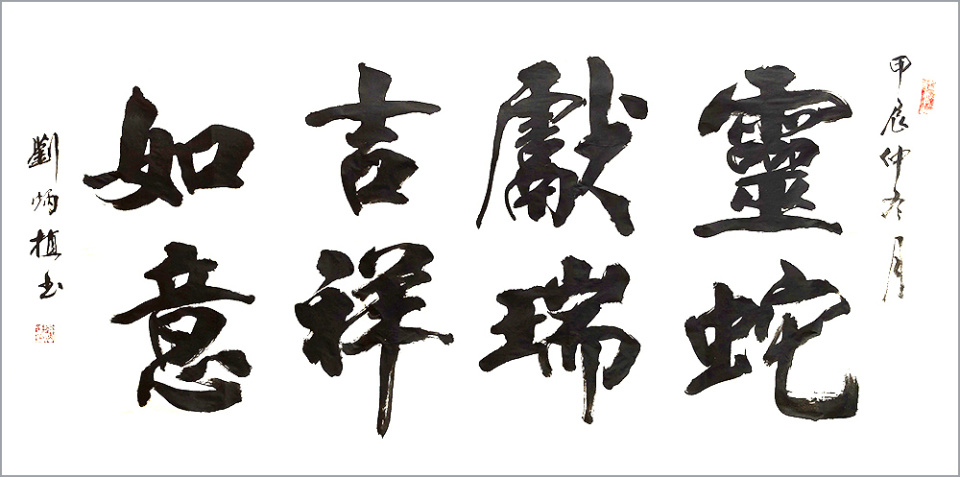 甲辰仲冬月
靈蛇
獻瑞
吉祥
如意
劉炳植书